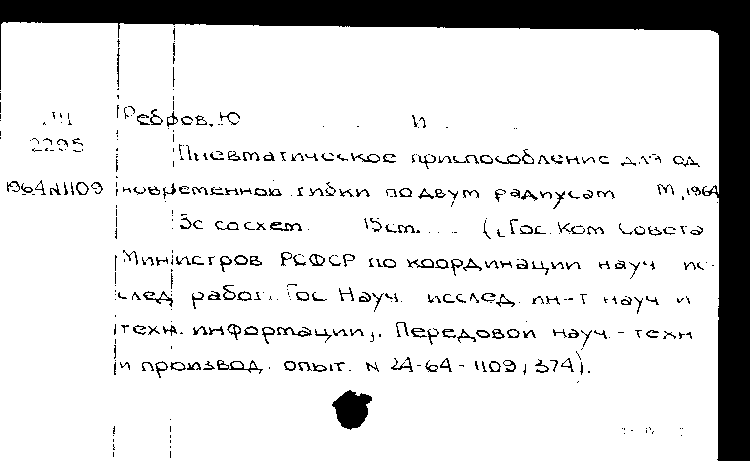 Ш Ребров, Ю И
2295
Пневматическое приспособление для од
1964 N1109 новременной гибки по двум радиусам М, 1964
3с со схем. 15 см. (Гос. Ком Совета
Министров РСФСР по координации науч ис-
след работ. Гос Науч. исслед. ин-т науч и
техн. информации, Передовой науч.-техн
и производ. опыт. N 24-64-1109, 374).